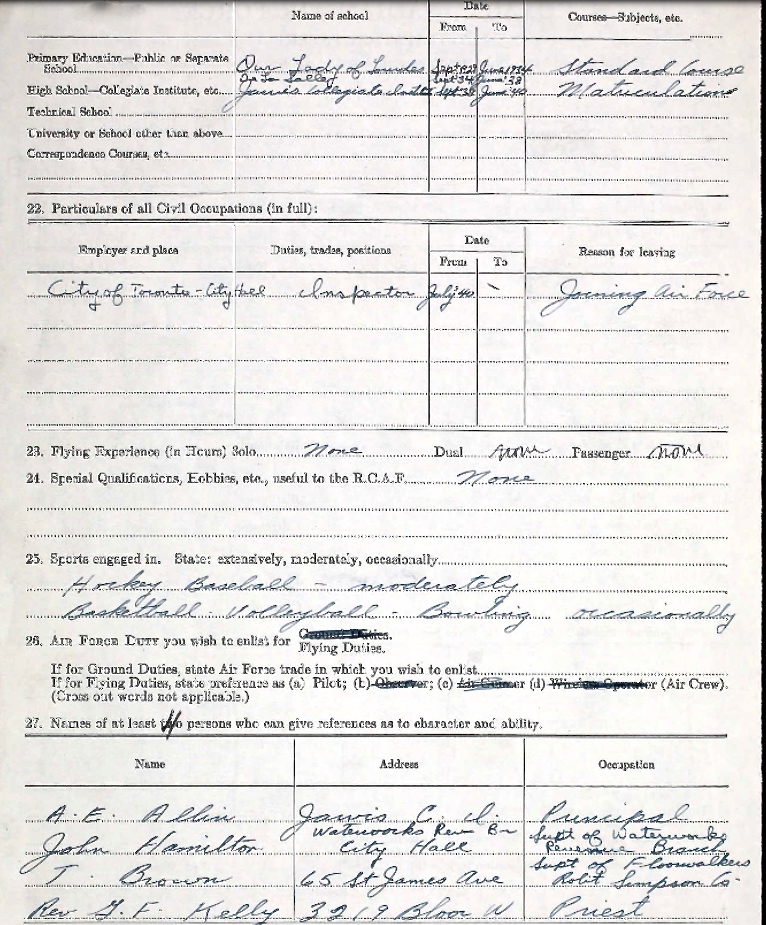 Name of school Date Courses—Subjects, etc.
From To
Primary Education—Public or Separate
School Our Lady of Lourdes Sept 1928 June 1934 Standard Course
De La Salle Sept 34 June 38
High School—Collegiate Institute, etc. Jarvis Collegiate Sept 38 June 40 Matriculation
Technical School
University or School other than above
Correspondence Courses, etc.
22. Particulars of all Civil Occupations (in full):
Employer and place Duties, trades, positions Date Reason for leaving
From To
City of Toronto - City Hall Inspector July 40 \ Joining Air Force
23. Flying Experience (in Hours) Solo None Dual none Passenger none
24. Special Qualifications, Hobbies, etc., useful to the R.C.A.F. None
25. Sports engaged in. State: extensively, moderately, occasionally
Hockey Baseball - moderately
Basketball - Volleyball - Bowling occasionally
26. AIR FORCE DUTY you wish to enlist for Ground Duties.
Flying Duties.
If for Ground Duties, state Air Force trade in which you wish to enlist
If for Flying Duties, state preference as (a) Pilot; (b) Observer; (c) Air Gunner (d) Wireless Operator (Air Crew).
(Cross out words not applicable.)
27. Names of at least persons who can give references as to character and ability.
Name Address Occupation
A. E. Allin Jarvis C. I. Principal
John Hamilton Waterworks Rev. Br. City Hall Supt of Waterworks Revenue Branch
T. Brown 65 St James Ave Supt of Floorwalkers Robt Simpson Co.
Rev G. F. Kelly 3219 Bloor W Priest